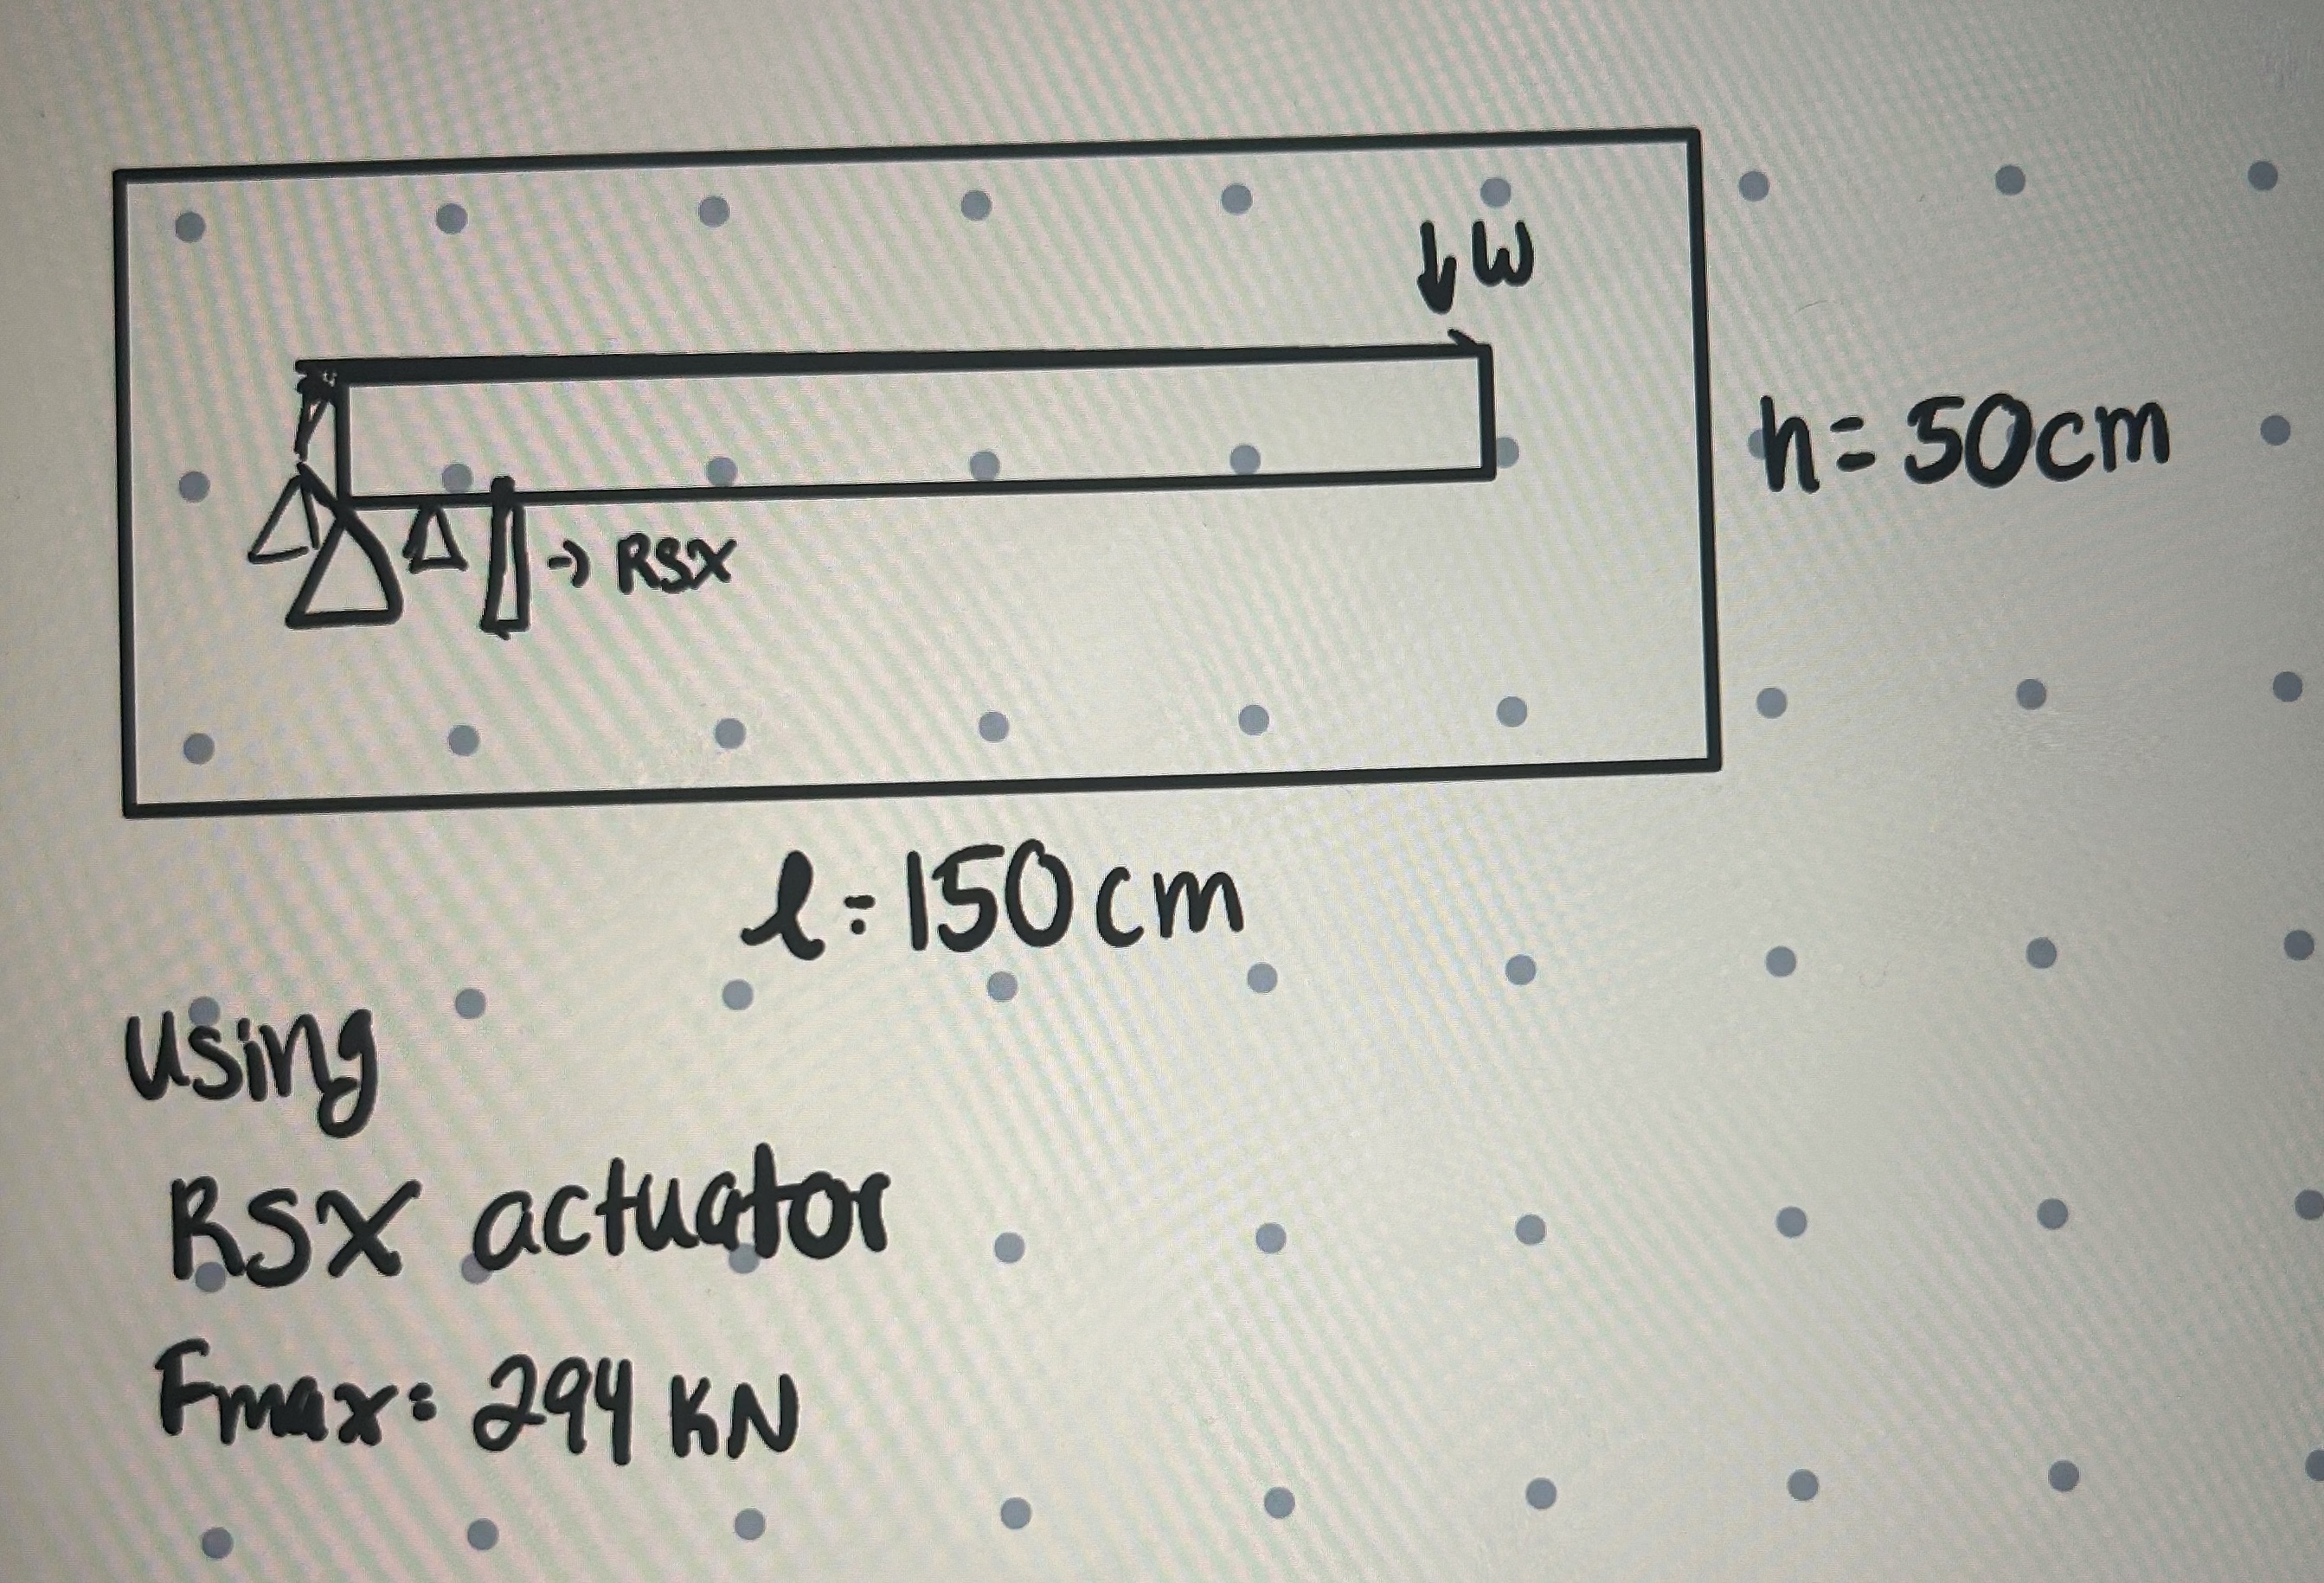 ↓ W
h = 50cm
→ RSX
l = 150cm
using
RSX actuator
Fmax: 294 KN